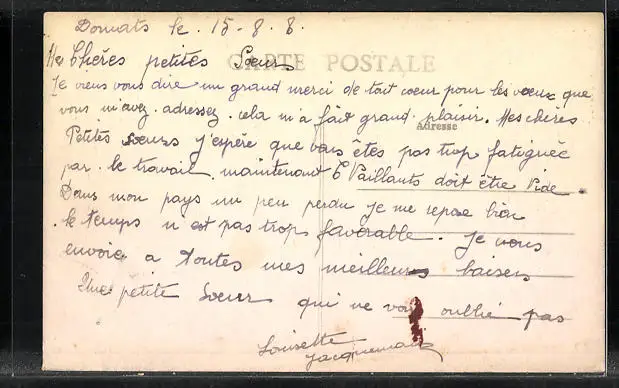 Domats le 15-8-8.
CARTE POSTALE
Mes Chères petites Sœurs
Je viens vous dire un grand merci de tout cœur pour les vœux que
vous m'avez adressez. cela m'a fait grand plaisir. Mes chères
Adresse
Petites sœurs j'espère que vous êtes pas trop fatiguée
par le travail, maintenant 6 Vaillants doit être Vide.
Dans mon pays un peu perdu je me repose bien
le temps n'est pas trop favorable. Je vous
envoie a toutes mes meilleurs baisers
Une petite Sœur qui ne vous oublie pas
Louisette